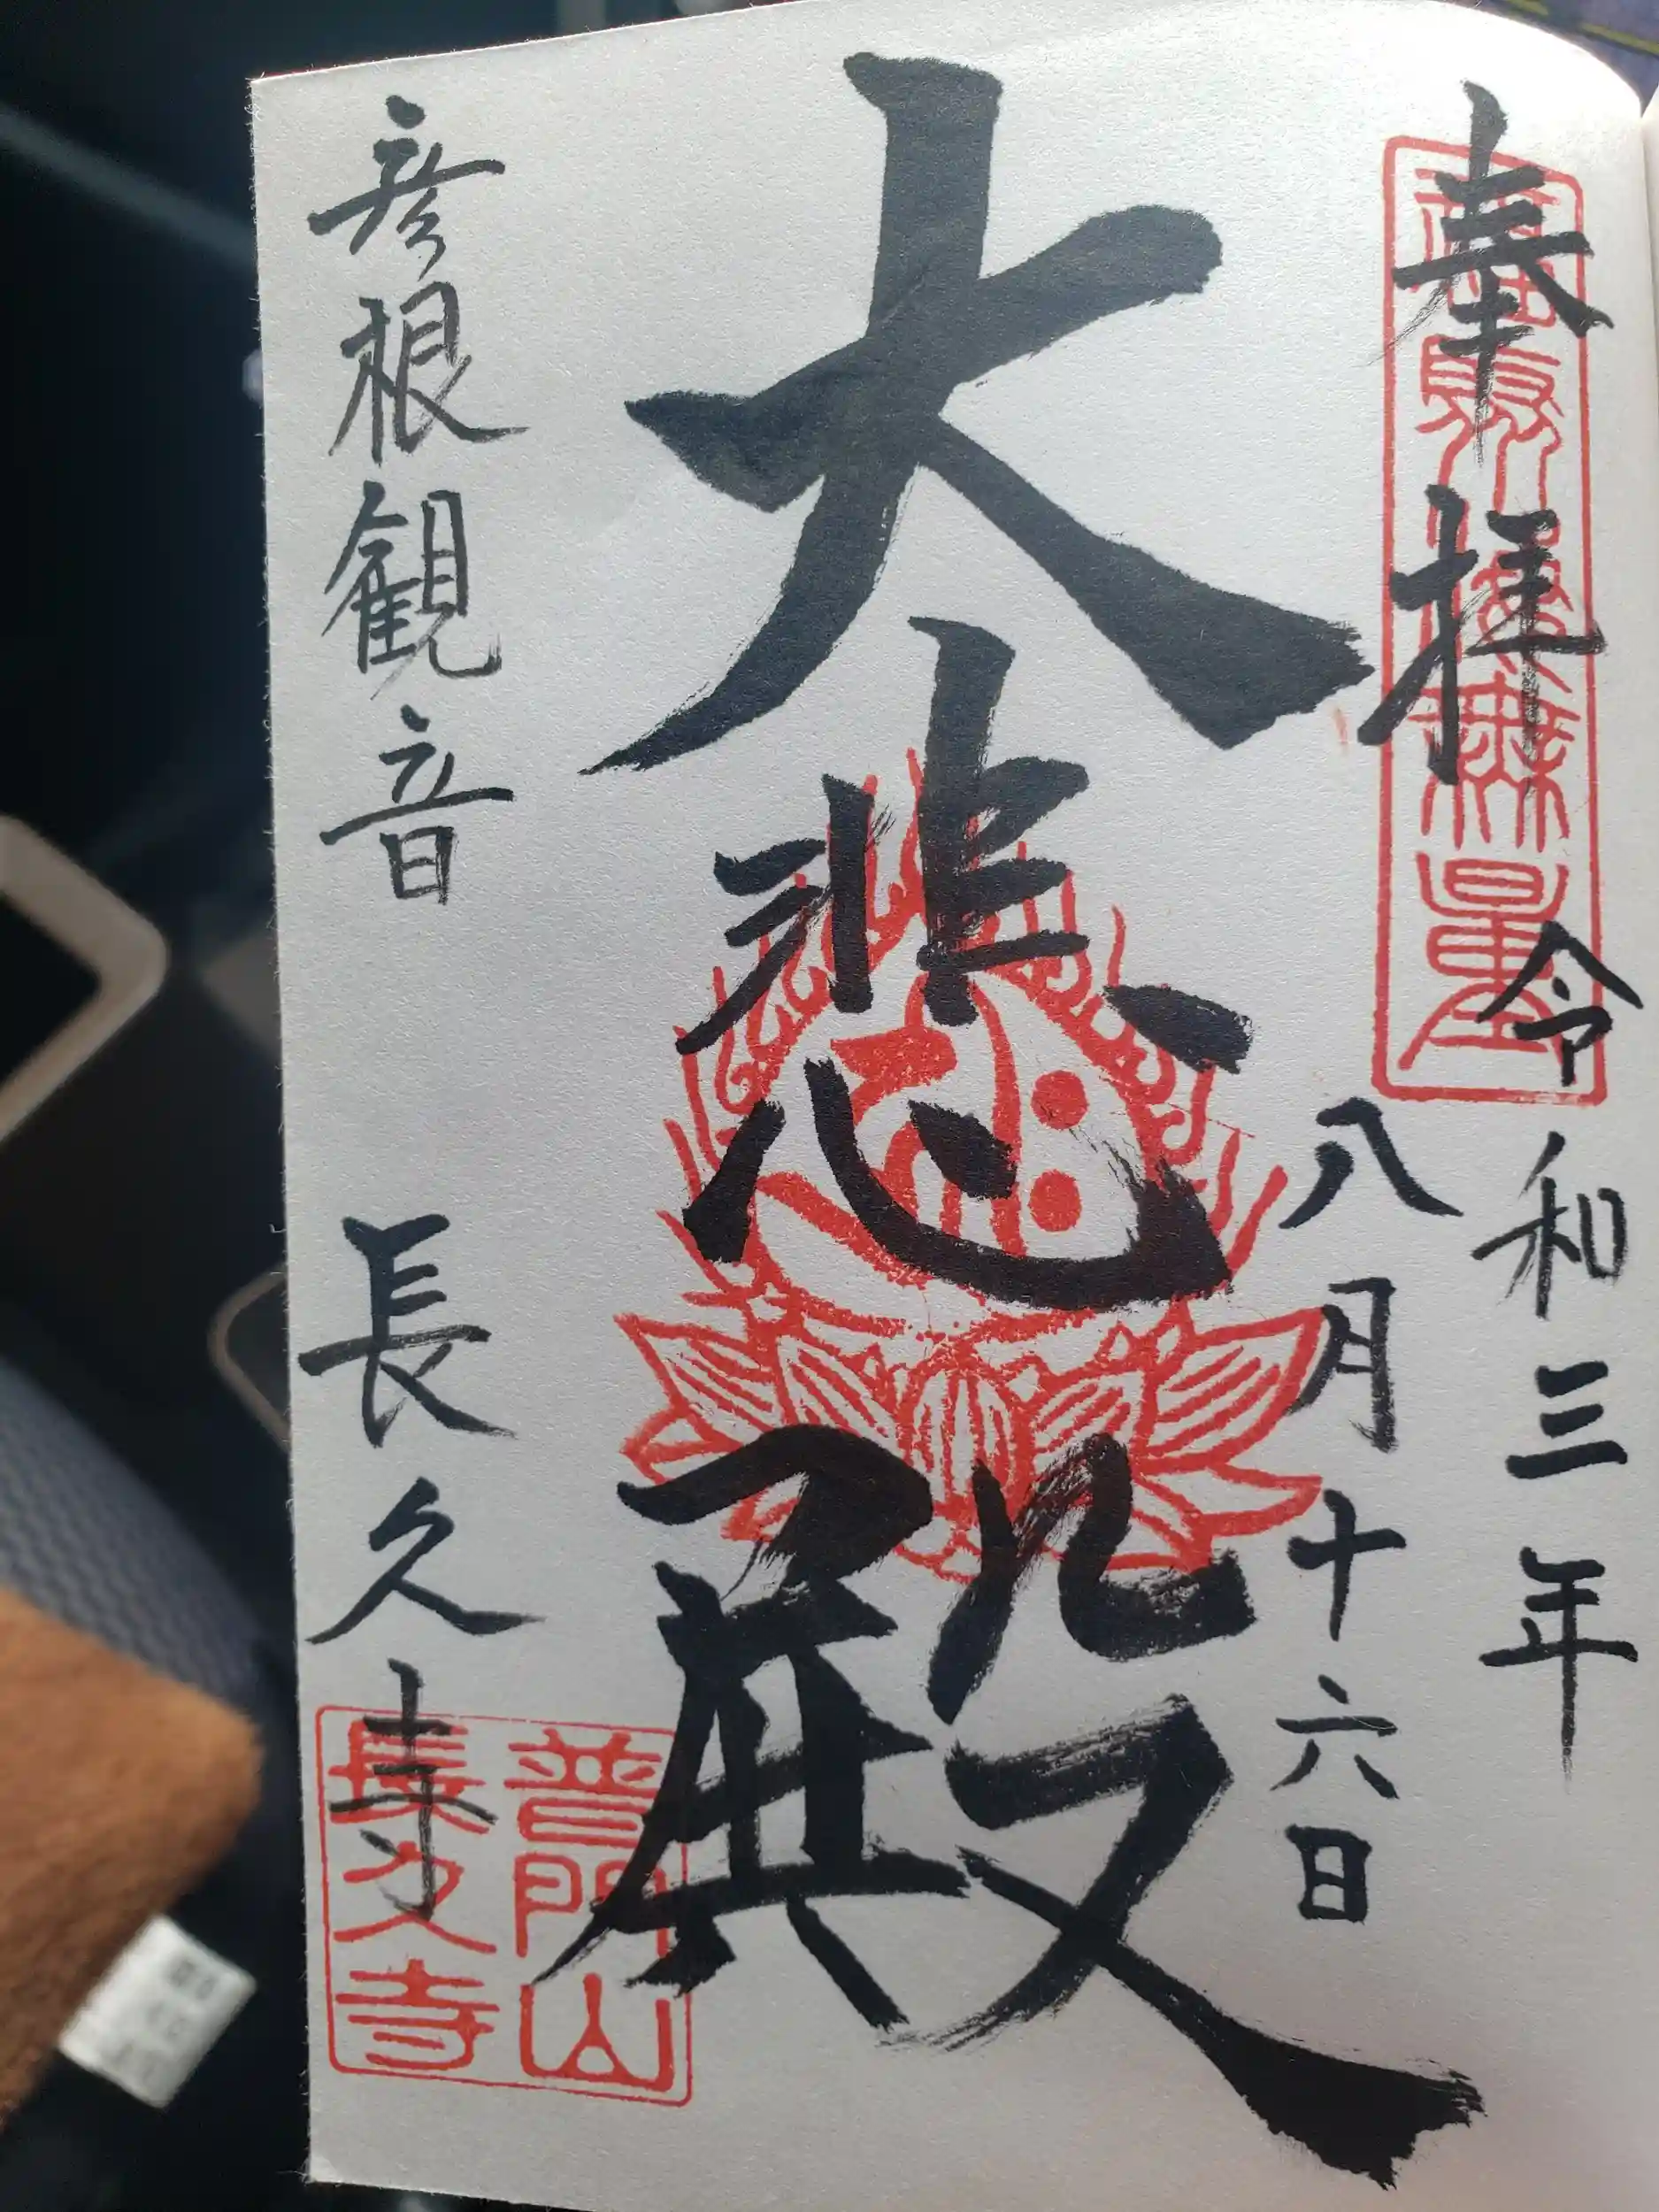 奉拝
令和三年
八月十六日
大悲殿
彦根観音
長久寺
福聚海無量
普門山
長久寺